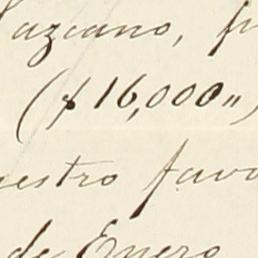 aziano, p
($16,000,,)
estro favo
de Enero